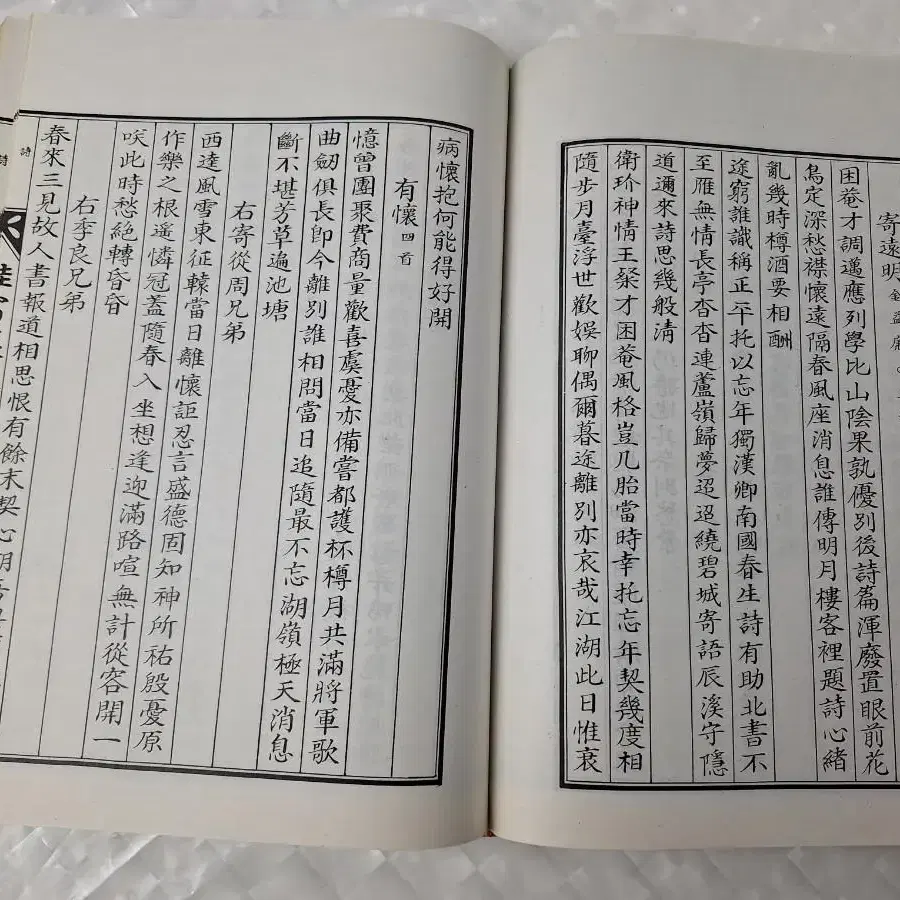 寄遠明
困菴才調邁應列學比山陰果孰優別後詩篇渾廢置眼前花
鳥定深愁襟懷遠隔春風座消息誰傳明月樓客裡題詩心緒
亂幾時樽酒要相酬
途窮誰識稱正平托以忘年獨漢卿南國春生詩有助北書不
至雁無情長亭杳杳連蘆嶺歸夢迢迢繞碧城寄語辰溪守隱
道邇來詩思幾般淸
衛玠神情王粲才困菴風格豈凡胎當時幸托忘年契幾度相
隨步月臺浮世歡娛聊偶爾暮途離別亦哀哉江湖此日惟衰
病懷抱何能得好開
有懷四首
憶曾團聚費商量歡喜虞憂亦備嘗都護杯樽月共滿將軍歌
曲劒俱長卽今離別誰相問當日追隨最不忘湖嶺極天消息
斷不堪芳草遍池塘
右寄從周兄弟
西達風雪東征轅當日離懷詎忍言盛德固知神所祐殷憂原
作樂之根遙憐冠蓋隨春入坐想逢迎滿路喧無計從容開一
咲此時愁絕轉昏昏
右季良兄弟
春來三見故人書報道相思恨有餘末契心期
詩
詩